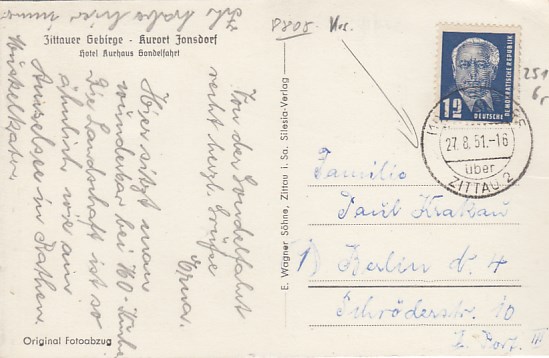 Ich habe hier immer
Zittauer Gebirge - Kurort Jonsdorf
Hotel Kurhaus Gondelfahrt
Von der Gondelfahrt
recht herzl. Grüße
Erna.
Hier sitzt man
wunderbar bei HO-
Die Landschaft ist so
ähnlich wie am
Amselsee in Rathen.
Muskelkater.
Original Fotoabzug
E. Wagner Söhne, Zittau i. Sa. Silesia-Verlag
P805
12
DEUTSCHE
DEMOKRATISCHE REPUBLIK
251
27.8.51.-16
über
ZITTAU 2
Familie
Paul Krakau
1) Berlin N. 4
Schröderstr. 10
III